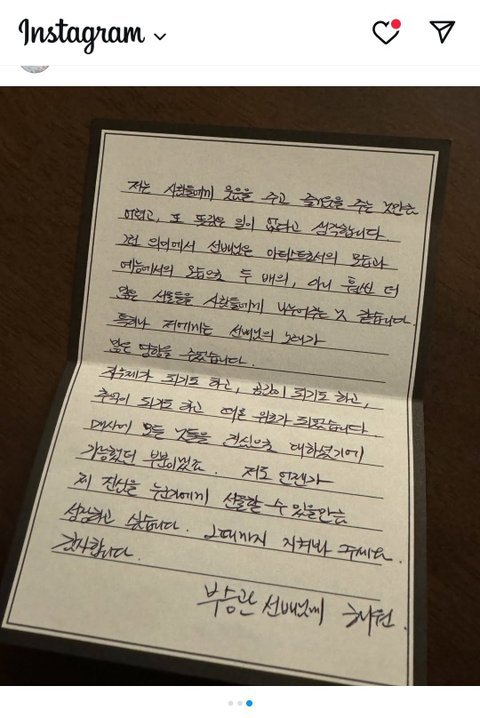 Instagram
저는 사람들에게 웃음을 주고 즐거움을 주는 것만큼
어렵고, 또 뜻깊은 일이 없다고 생각합니다.
그런 의미에서 선배님은 아티스트로서의 모습과
예능에서의 모습으로 두 배의, 아니 훨씬 더
많은 선물들을 사람들에게 나누어주는 것 같습니다.
특히나 저에게는 선배님의 노래가
많은 영향을 주었습니다.
되기도 하고, 공감이 되기도 하고,
추억이 되기도 하고 때론 위로가 되었습니다.
매사에 모든 것들을 진심으로 대하셨기에
가능했던 부분이겠죠. 저도 언젠가
제 진심을 누군가에게 선물할 수 있을만큼
성장하고 싶습니다. 그때까지 지켜봐 주세요.
감사합니다.
부승관 선배님께